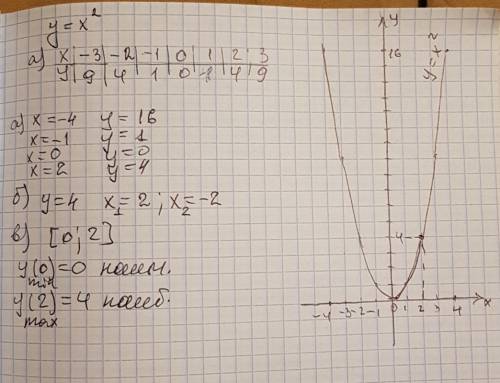 y=x²
a) x | -3 | -2 | -1 | 0 | 1 | 2 | 3
y | 9 | 4 | 1 | 0 | 1 | 4 | 9
a) x=-4 y=16
x=-1 y=1
x=0 y=0
x=2 y=4
б) y=4 x₁=2; x₂=-2
в) [0; 2]
y(0)=0 наим.
min
y(2)=4 наиб.
max
y
16
y=x²
4
-4 -3 -2 -1 0 1 2 3 4 x